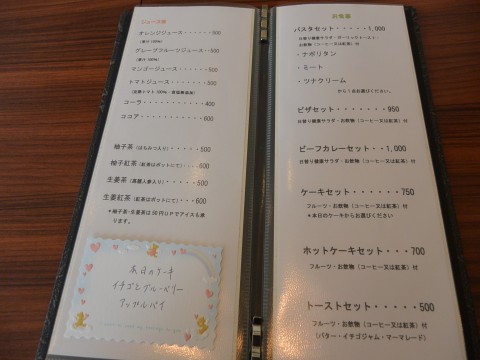 ジュース類
オレンジジュース・・・・・・500
(果汁 100%)
グレープフルーツジュース・・500
(果汁 100%)
マンゴージュース・・・・・・500
トマトジュース・・・・・・・500
コーラ・・・・・・・・・・・400
ココア・・・・・・・・・・・600
柚子茶(はちみつ入り)・・・・・500
柚子紅茶(紅茶はポットにて)・・・600
生姜茶(高麗人参入り)・・・・・500
生姜紅茶(紅茶はポットにて)・・・600
*柚子茶・生姜茶は50円UPでアイスも承
ります。
本日のケーキ
イチゴとブルーベリー
アップルパイ
お食事
パスタセット・・・・・1,000
日替り健康サラダ・ガーリックトースト・
お飲物(コーヒー又は紅茶)付
・ナポリタン
・ミート
・ツナクリーム
から1品お選びください。
ピザセット・・・・・・・950
日替り健康サラダ・お飲物(コーヒー又は紅茶)付
ビーフカレーセット・・1,000
日替り健康サラダ・お飲物(コーヒー又は紅茶)付
ケーキセット・・・・・・750
フルーツ・お飲物(コーヒー又は紅茶)付
*本日のケーキからお選びください
ホットケーキセット・・・700
フルーツ・お飲物(コーヒー又は紅茶)付
トーストセット・・・・・500
フルーツ・お飲物(コーヒー又は紅茶)付
(バター・イチゴジャム・マーマレード)